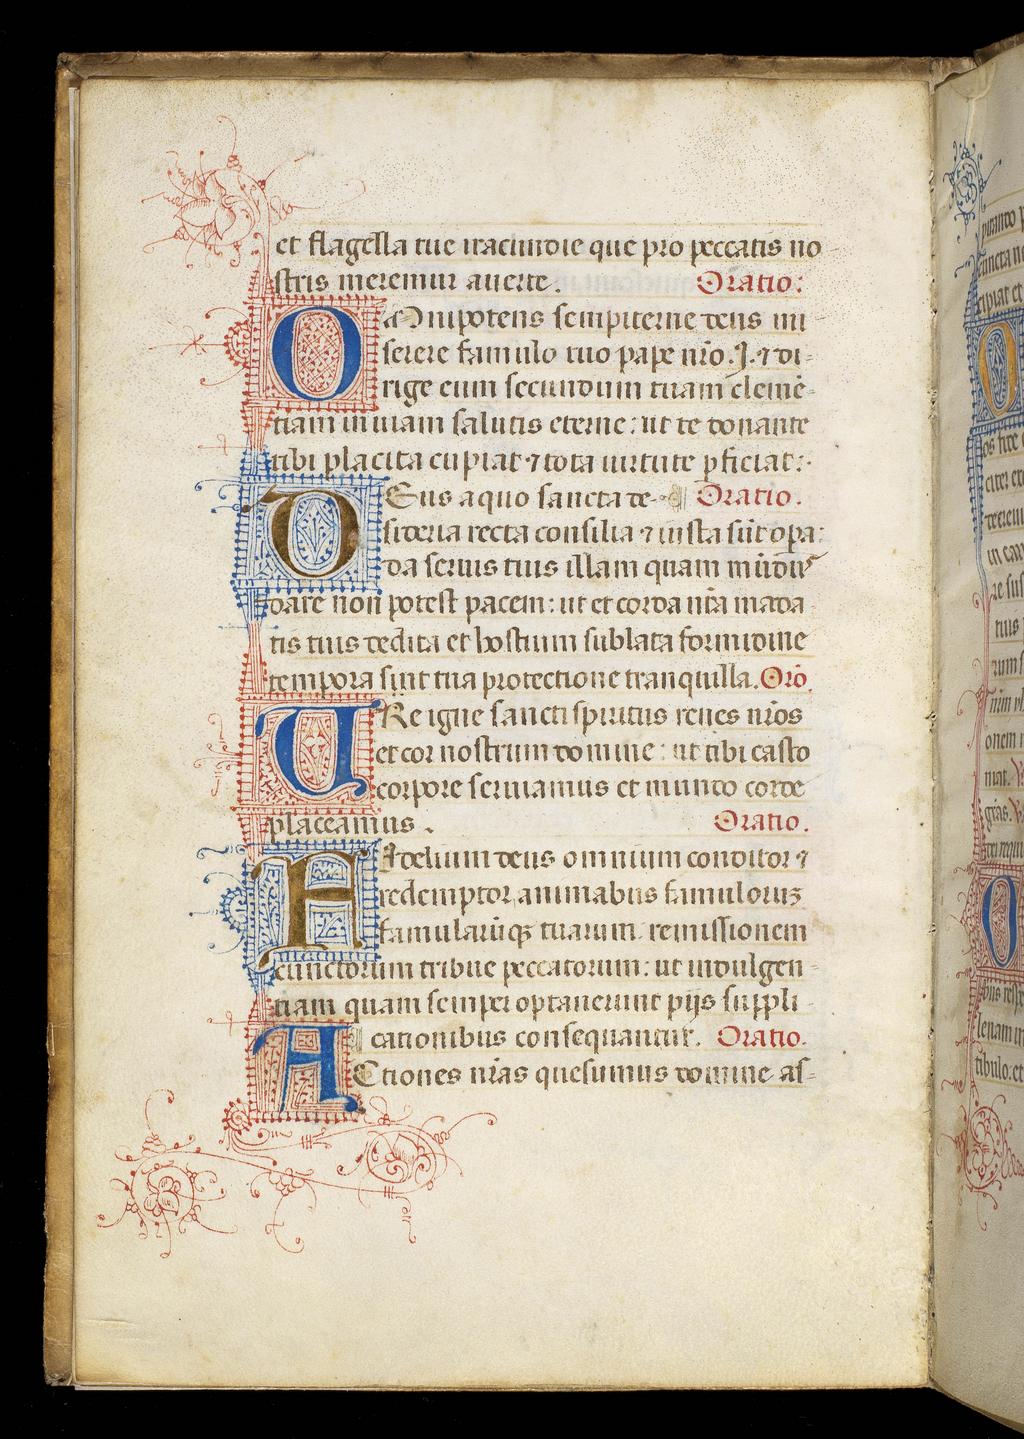 et flagella tue iracundie que pro peccatis no
stris meremur auerte. Oratio:
OMnipotens sempiterne deus mi
serere famulo tuo pape nr̄o. J. ⁊ di-
rige eum secundum tuam clemē-
tiam in uiam salutis eterne: ut te donante
tibi placita cupiat ⁊ tota uirtute ꝑficiat:
DEus a quo sancta de- Oratio.
sideria recta consilia ⁊ iusta sūt opa:
da seruis tuis illam quam mūdus
dare non potest pacem: ut et corda nr̄a māda
tis tuis dedita et hostium sublata formidine
tempora sint tua protectione tranquilla. Orō.
URe igne sancti spiritus renes nr̄os
et cor nostrum domine: ut tibi casto
corpore seruiamus et mundo corde
placeamus. Oratio.
FIdelium deus omnium conditor ⁊
redemptor, animabus famuloruꝫ
famularūqꝫ tuarum remissionem
cunctorum tribue peccatorum: ut indulgen-
tiam quam semper optauerunt pijs suppli-
cationibus consequantur. Oratio.
ACtiones nr̄as quesumus domine as-